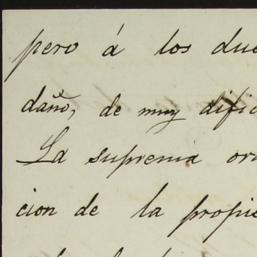 pero á los due
daño, de muy dific
La suprema or
cion de la propie